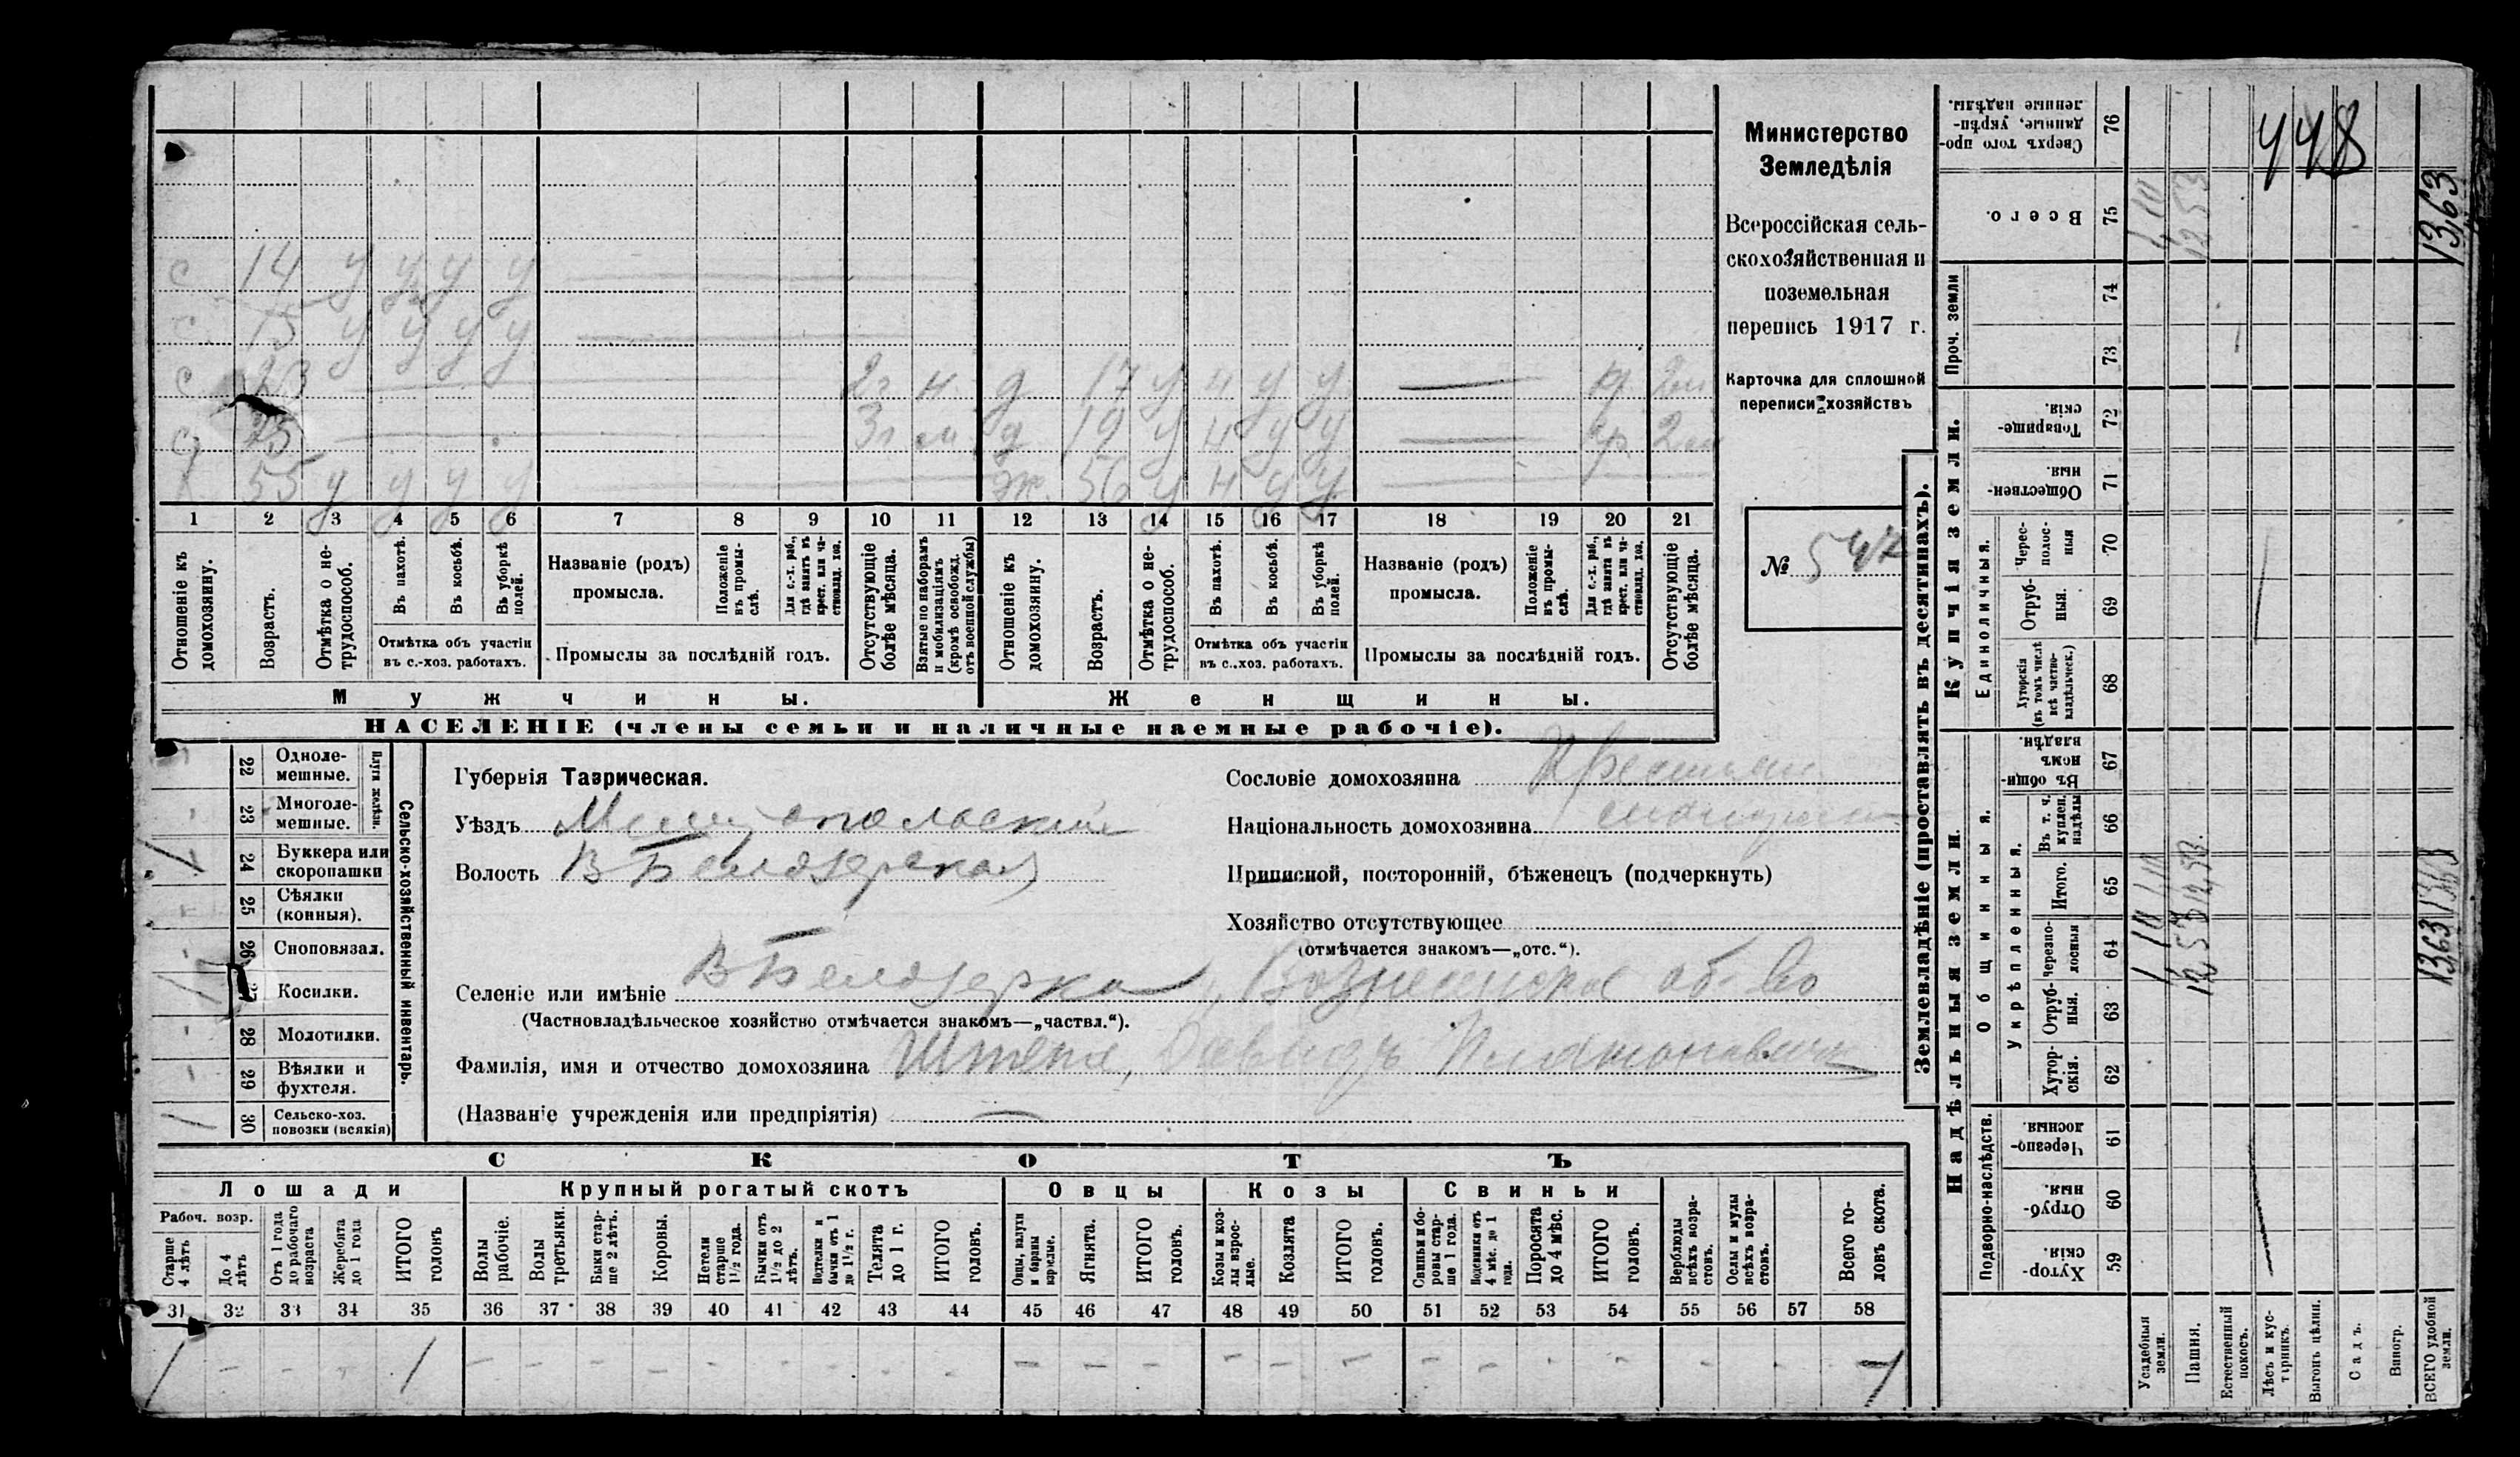 448
Министерство
Земледѣлія
Всероссійская сель-
скохозяйственная и
поземельная
перепись 1917 г.
Карточка для сплошной
переписи хозяйствъ
№ 547
с 14 у у у у
с 15 у у у у
с 23 2г. н. д 17 у н у у — кр. 2м
с 25 3г. м. д 19 у н у у — кр. 2м
х 55 у у у у ж. 56 у н у у
1 2 3 4 5 6 7 8 9 10 11 12 13 14 15 16 17 18 19 20 21
Отношеніе къ домохозяину.
Возрастъ.
Отмѣтка о не-трудоспособ.
Въ пахотѣ.
Въ косьбѣ.
Въ уборкѣ полей.
Отмѣтка объ участіи
въ с.-хоз. работахъ.
Названіе (родъ)
промысла.
Положеніе въ промы-слѣ.
Для с.-х. раб., гдѣ занятъ въ крест. или ча-стновлад. хоз.
Промыслы за послѣдній годъ.
Отсутствующіе болѣе мѣсяца.
Взятые по наборамъ и мобилизаціямъ (кромѣ освобожд. отъ военной службы)
Отношеніе къ домохозяину.
Возрастъ.
Отмѣтка о не-трудоспособ.
Въ пахотѣ.
Въ косьбѣ.
Въ уборкѣ полей.
Отмѣтка объ участіи
въ с..хоз. работахъ.
Названіе (родъ)
промысла.
Положеніе въ промы-слѣ.
Для с.-х. раб., гдѣ занята въ крест. или ча-стновлад. хоз.
Промыслы за послѣдній годъ.
Отсутствующіе болѣе мѣсяца.
Мужчины. Женщины.
НАСЕЛЕНІЕ (члены семьи и наличные наемные рабочіе).
22 Одноле-мешные.
23 Многоле-мешные.
Плуги желѣзн.
24 Буккера или скоропашки
25 Сѣялки (конныя).
26 Сноповязал.
27 Косилки.
28 Молотилки.
29 Вѣялки и фухтеля.
30 Сельско-хоз. повозки (всякія)
Сельско-хозяйственный инвентарь.
Губернія Таврическая.
Уѣздъ Мелитопольскій
Волость В Белозерская
Селеніе или имѣніе В Белозерка, Вознесенское об-во
(Частновладѣльческое хозяйство отмѣчается знакомъ—„частвл.“).
Фамилія, имя и отчество домохозяина Штепа, Давидъ Платоновичъ
(Названіе учрежденія или предпріятія) —
Сословіе домохозяина Крестьян
Національность домохозяина
Приписной, посторонній, бѣженецъ (подчеркнуть)
Хозяйство отсутствующее
(отмѣчается знакомъ—„отс.“).
СКОТЪ
Лошади Крупный рогатый скотъ Овцы Козы Свиньи
Рабоч. возр.
Старше 4 лѣтъ
До 4 лѣтъ
Отъ 1 года до рабочаго возраста
Жеребята до 1 года
ИТОГО головъ
Волы рабочіе.
Волы третьяки.
Быки стар-ше 2 лѣтъ.
Коровы.
Нетели старше 1½ года.
Бычки отъ 1½ до 2 лѣтъ.
Подтелки и бычки отъ 1 до 1½ г.
Телята до 1 г.
ИТОГО головъ.
Овцы, валухи и бараны взрослые.
Ягнята.
ИТОГО головъ.
Козы и коз-лы взрос-лые.
Козлята
ИТОГО головъ.
Свиньи и бо-ровы стар-ше 1 года.
Подсвинки отъ 4 мѣс. до 1 года.
Поросята до 4 мѣс.
ИТОГО головъ.
Верблюды всѣхъ возра-стовъ.
Ослы и мулы всѣхъ возра-стовъ.
Всего го-ловъ скота.
31 32 33 34 35 36 37 38 39 40 41 42 43 44 45 46 47 48 49 50 51 52 53 54 55 56 57 58
1 - - - 1 - - - - - - - - - - - - - - - - - - - - - - 1
Землевладѣніе (проставлять въ десятинахъ).
Купчія земли.
Надѣльныя земли.
Проч. земли
Единоличныя.
Общинныя.
Укрѣпленныя.
Подворно-наслѣдств.
Сверхъ того про-данные, укрѣп-ленные надѣлы. 76
Всего. 75
74
73
Товарище-скія. 72
Обществен-ныя. 71
Черес-полос-ныя 70
Отруб-ныя. 69
Хуторскія (въ томъ числѣ всѣ частно-владѣльческ.) 68
Въ общи-номъ владѣн. 67
Въ т. ч. куплен. надѣлы 66
Итого. 65
Черезпо-лосныя 64
Отруб-ныя. 63
Хутор-скія. 62
Черезпо-лосныя. 61
Отруб-ныя. 60
Хутор-скія. 59
Усадебныя земли. 1,10 1,10 1,10
Пашня. 12,53 12,53 12,53
Естественный покосъ.
Лѣсъ и кус-тарникъ.
Выгонъ цѣлин.
Садъ.
Виногр.
ВСЕГО удобной земли. 13,63 13,63 13,63